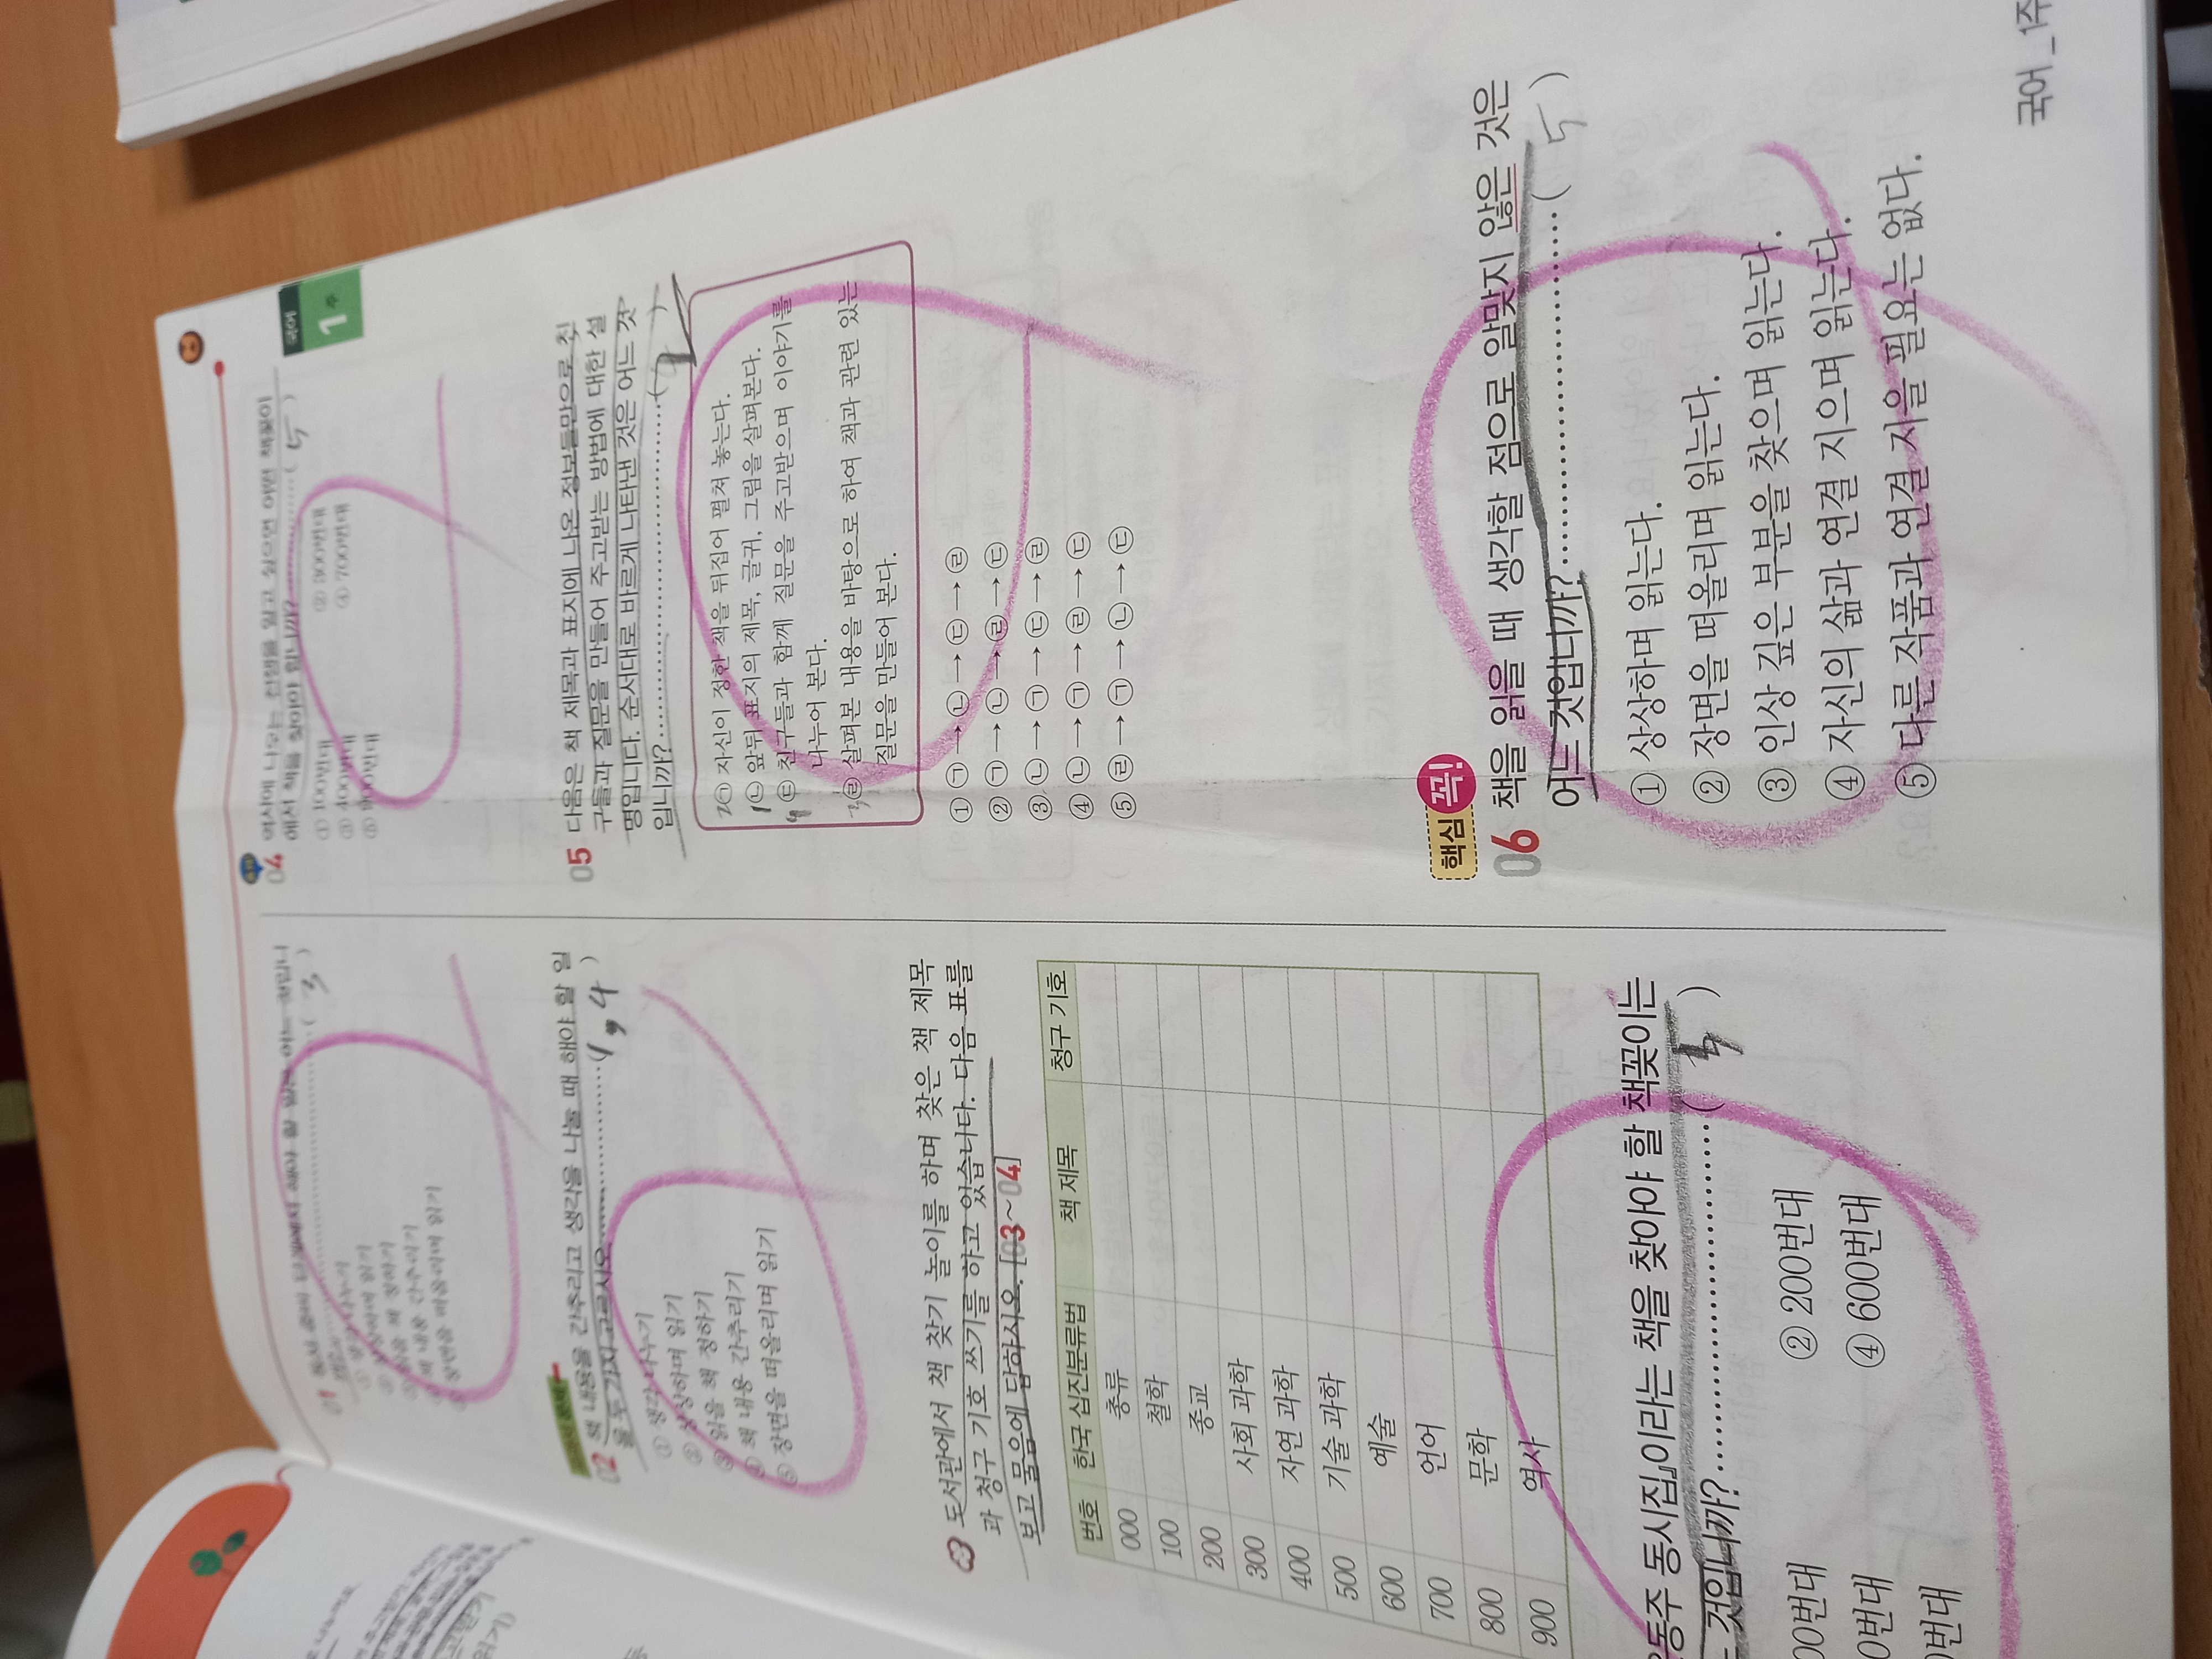 02 책 내용을 간추리고 생각을 나눌 때 해야 할 일
을 두 가지 고르시오. (1, 4)
① 생각 나누기
② 상상하며 읽기
③ 읽을 책 정하기
④ 책 내용 간추리기
⑤ 장면을 떠올리며 읽기
도서관에서 책 찾기 놀이를 하며 찾은 책 제목
과 청구 기호 쓰기를 하고 있습니다. 다음 표를
보고 물음에 답하시오. [03~04]
번호 한국 십진분류법 책 제목 청구 기호
000 총류
100 철학
200 종교
300 사회 과학
400 자연 과학
500 기술 과학
600 예술
700 언어
800 문학
900 역사
동주 동시집』이라는 책을 찾아야 할 책꽂이는
것입니까? ( 5 )
00번대 ② 200번대
0번대 ④ 600번대
번대
국어
1주
04 역사에 나오는 인물을 알고 싶으면 어떤 책꽂이
에서 책을 찾아야 합니까? ( 5 )
① 100번대 ② 300번대
③ 400번대 ④ 700번대
⑤ 900번대
05 다음은 책 제목과 표지에 나온 정보들만으로 친
구들과 질문을 만들어 주고받는 방법에 대한 설
명입니다. 순서대로 바르게 나타낸 것은 어느 것
입니까? ( 2 )
㉠ 자신이 정한 책을 뒤집어 펼쳐 놓는다.
㉡ 앞뒤 표지의 제목, 글귀, 그림을 살펴본다.
㉢ 친구들과 함께 질문을 주고받으며 이야기를
나누어 본다.
㉣ 살펴본 내용을 바탕으로 하여 책과 관련 있는
질문을 만들어 본다.
① ㉠→㉡→㉢→㉣
② ㉠→㉡→㉣→㉢
③ ㉡→㉠→㉢→㉣
④ ㉡→㉠→㉣→㉢
⑤ ㉣→㉠→㉡→㉢
핵심 꼭!
06 책을 읽을 때 생각할 점으로 알맞지 않은 것은
어느 것입니까? ( 5 )
① 상상하며 읽는다.
② 장면을 떠올리며 읽는다.
③ 인상 깊은 부분을 찾으며 읽는다.
④ 자신의 삶과 연결 지으며 읽는다.
⑤ 다른 작품과 연결 지을 필요는 없다.
국어_1주